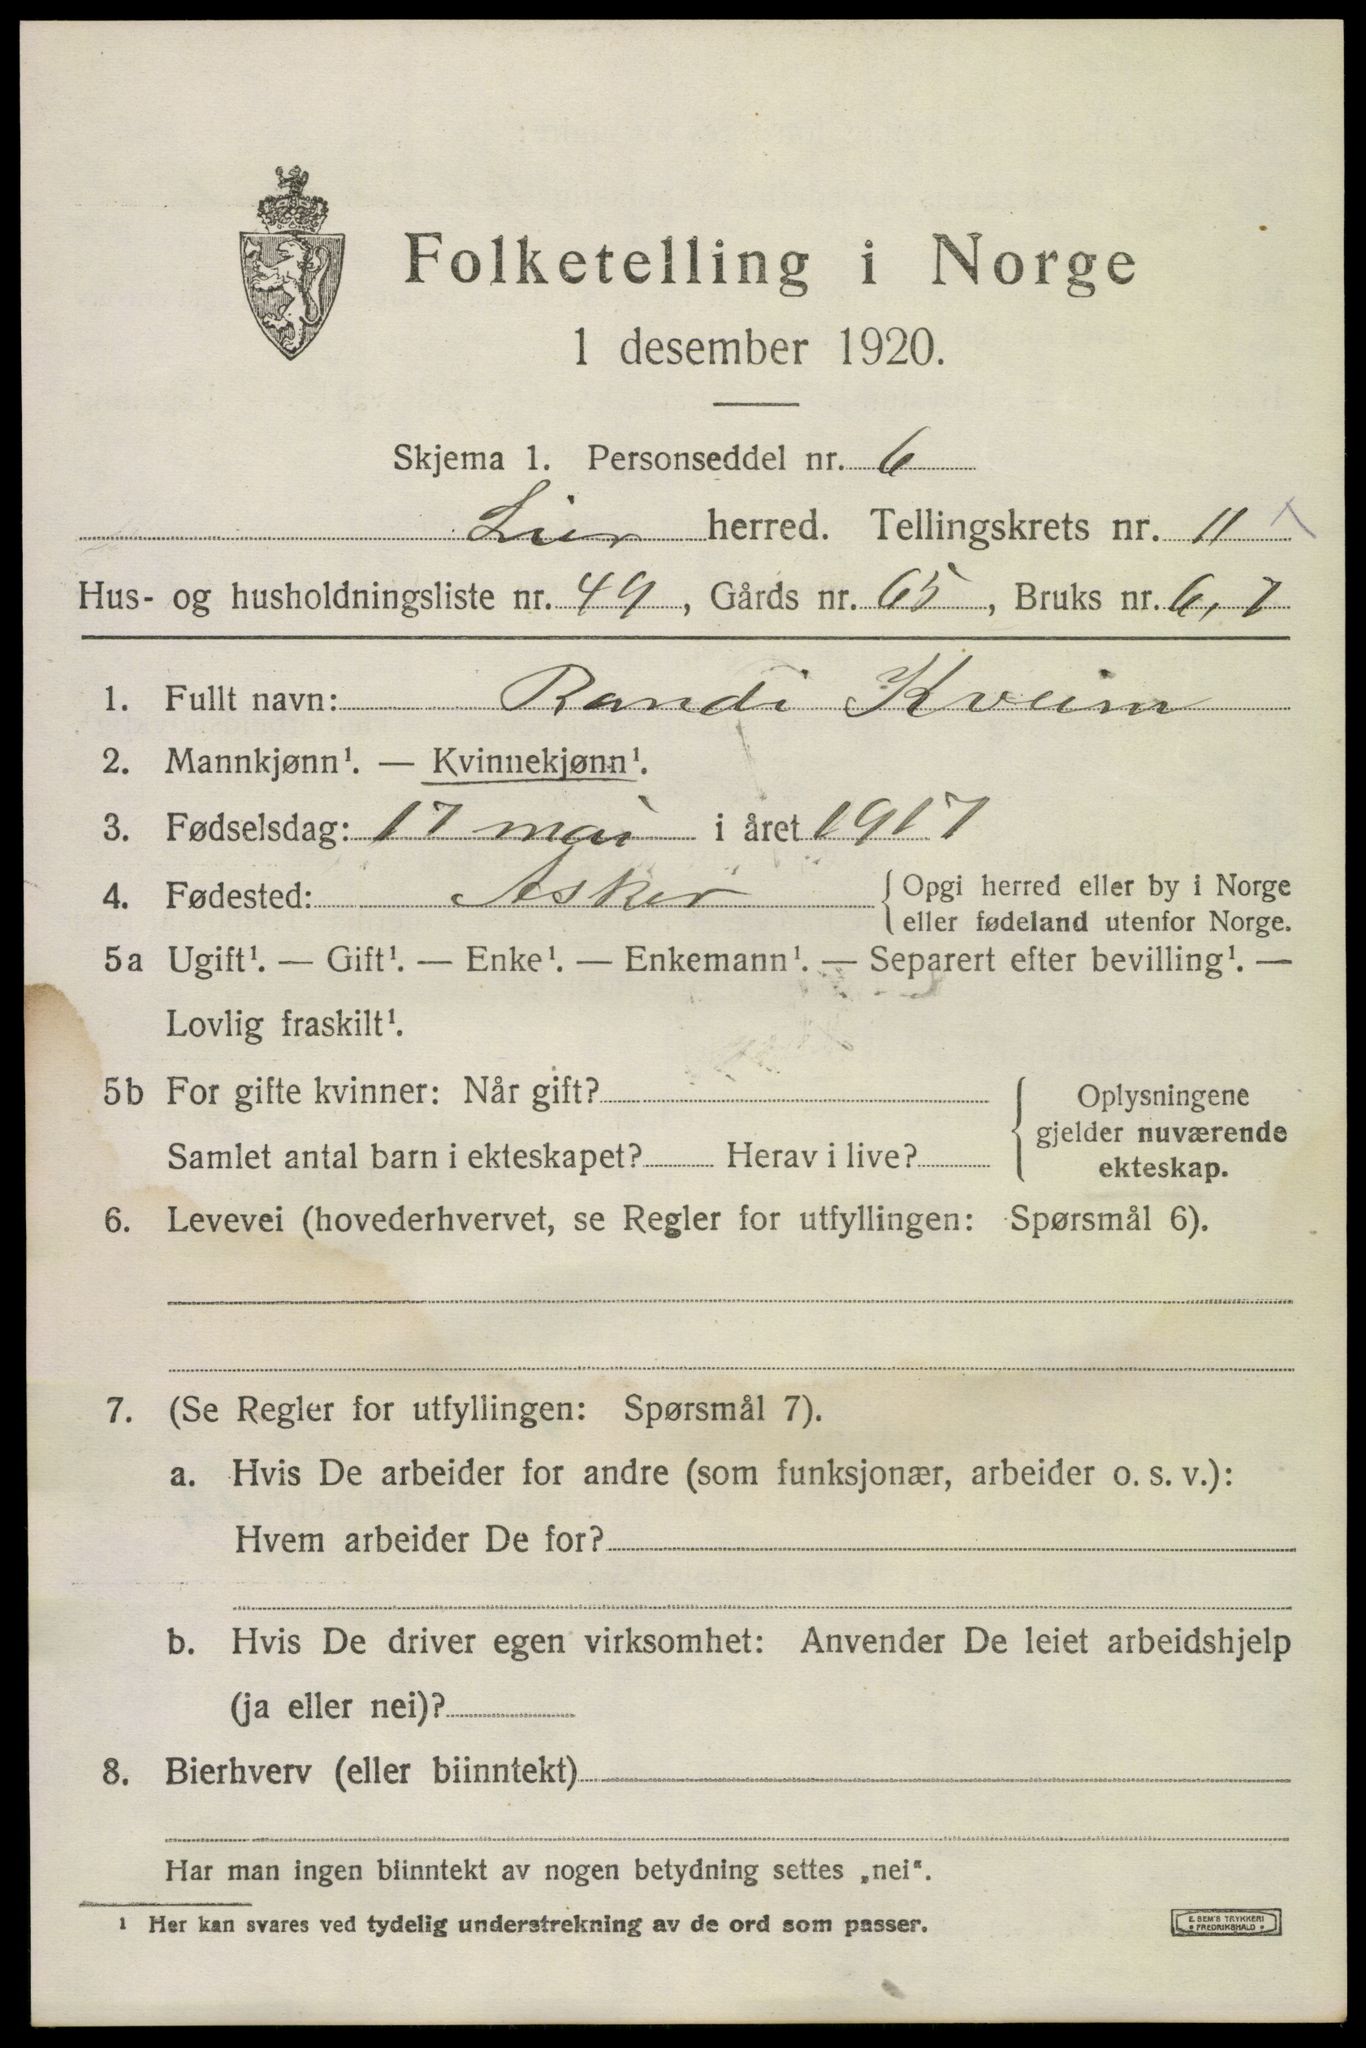 Folketelling i Norge
1 desember 1920.
Skjema 1. Personseddel nr. 6
Lier herred. Tellingskrets nr. 11
Hus- og husholdningsliste nr. 49, Gårds nr. 65, Bruks nr. 6,7
1. Fullt navn: Randi Kveim
2. Mannkjønn¹. — Kvinnekjønn¹.
3. Fødselsdag: 17 mai i året 1917
4. Fødested: Asker {Opgi herred eller by i Norge
eller fødeland utenfor Norge.
5a Ugift¹. — Gift¹. — Enke¹. — Enkemann¹. — Separert efter bevilling¹. —
Lovlig fraskilt¹.
5b For gifte kvinner: Når gift?
Samlet antal barn i ekteskapet? Herav i live?
Oplysningene
gjelder nuværende
ekteskap.
6. Levevei (hovederhvervet, se Regler for utfyllingen: Spørsmål 6).
7. (Se Regler for utfyllingen: Spørsmål 7).
a. Hvis De arbeider for andre (som funksjonær, arbeider o. s. v.):
Hvem arbeider De for?
b. Hvis De driver egen virksomhet: Anvender De leiet arbeidshjelp
(ja eller nei)?
8. Bierhverv (eller biinntekt)
Har man ingen biinntekt av nogen betydning settes „nei".
¹ Her kan svares ved tydelig understrekning av de ord som passer.
E. SEM'S TRYKKERI
• FREDRIKSHALD •